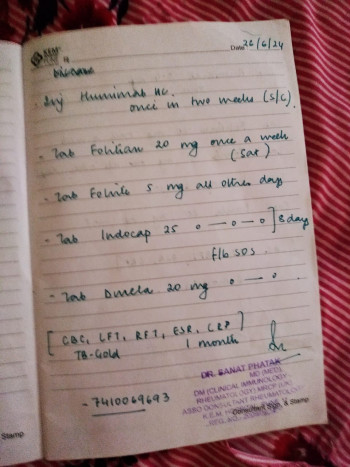 KEM
Date 26/6/24
- Inj Humimab HC.
once in two weeks (S/C).
- Tab Folitian 20 mg once a week
(Sat)
- Tab Folvite 5 mg all other days
- Tab Indocap 25 o — o — o ] 8 days
f/b SOS
- Tab Dmeta 20 mg o — o
[ CBC, LFT, RFT, ESR, CRP ]
TB-Gold 1 month
DR. SANAT PHATAK
MD (MED),
DM (CLINICAL IMMUNOLOGY
RHEUMATOLOGY) MRCP (UK)
ASSO CONSULTANT RHEUMATOLOGY
- 7410069693
Consultant Sign. & Stamp
Stamp